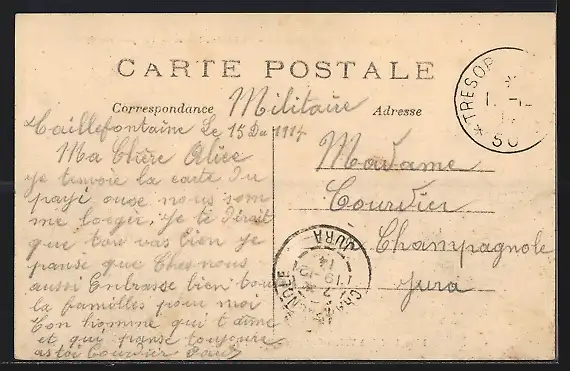 CARTE POSTALE
Correspondance Militaire Adresse
Taillefontaine Le 15 De 1914
Ma Chère Alice
je tenvoie la carte du
payi ouse nous som
me loegér. je te dirait
que tou vas bien je
panse que Ches nous
aussi Enbrasse bien tou
la familles pour moi
Ton homme qui t'aime
et qui panse toujours
as toi Courdier
Madame
Courdier
Champagnole
Jura
TRESOR
50
JURA
19 -12
14